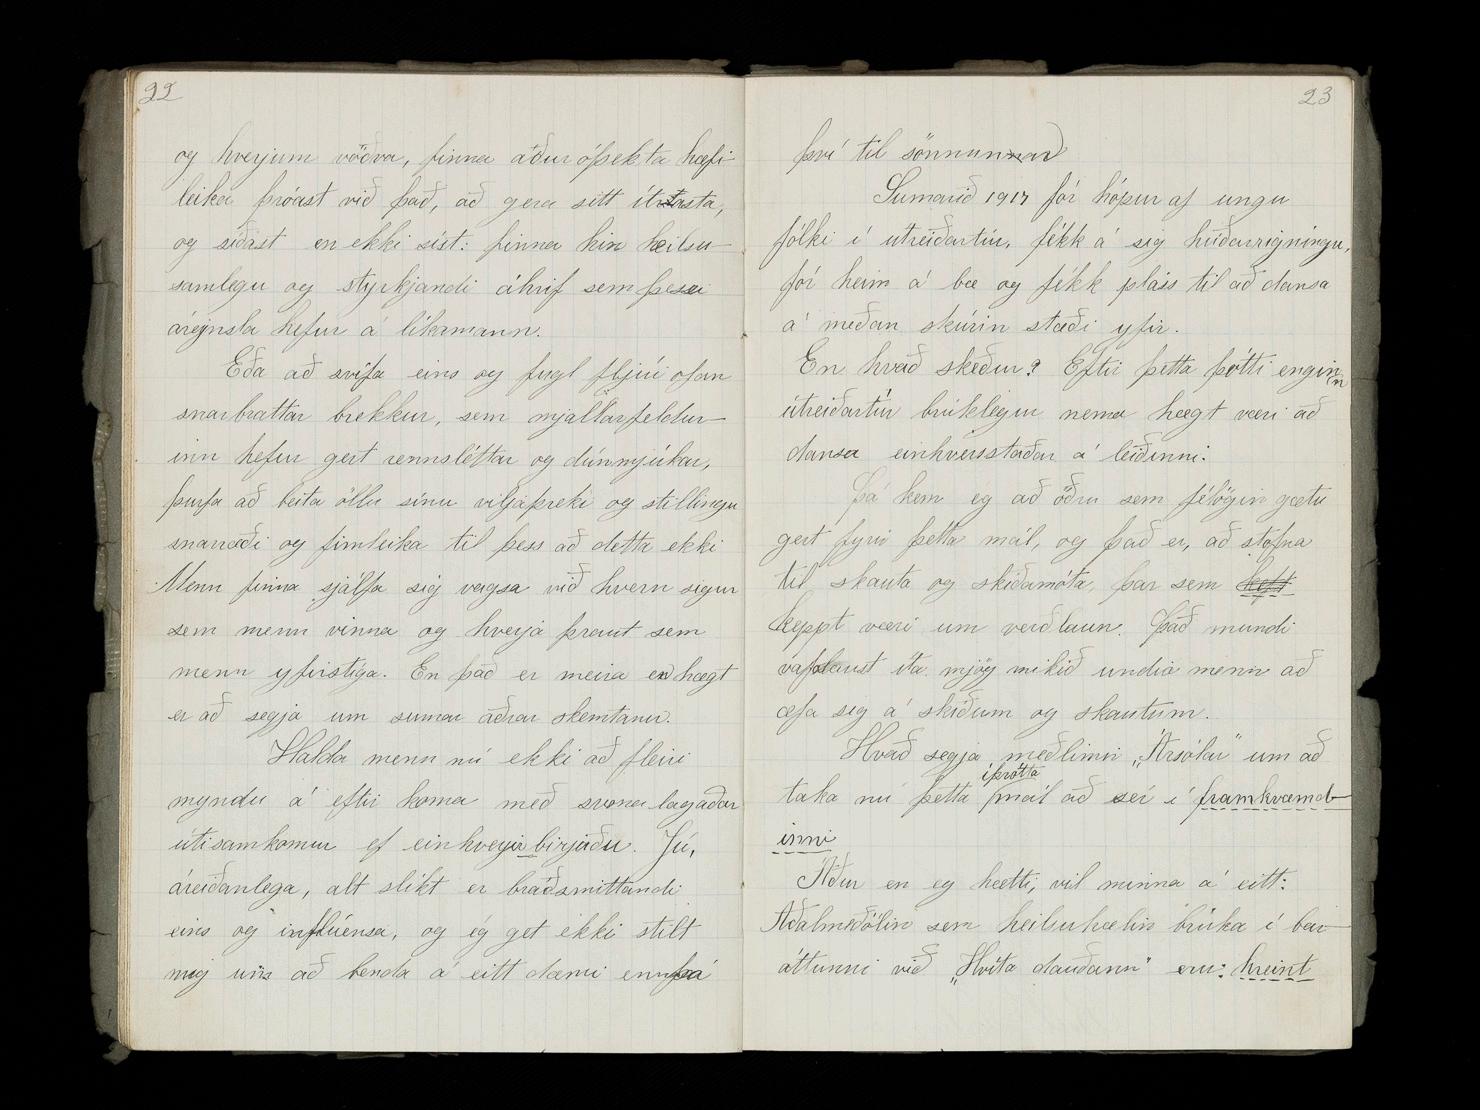 22
og hverjum vöðva, finna áður óþekta hæfi-
leika þróast við það, að gera sitt ítrasta,
og síðast en ekki síst: finna hin heilsu-
samlegu og styrkjandi áhrif sem þessi
áreynsla hefur á líkamann.
Eða að svífa eins og fugl fljúi ofan
snarbrattar brekkur, sem mjallarfeldur-
inn hefur gert rennsléttar og dúnmjúkar,
þurfa að beita öllu sínu viljaþreki og stillingu
snarræði og fimleika til þess að detta ekki
Menn finna sjálfa sig vagsa við hvern sigur
sem menn vinna og hverja þraut sem
menn yfirstíga. En það er meira en hægt
er að segja um sumar aðrar skemtanir.
Halda menn nú ekki að fleiri
myndu á eftir koma með svona lagaðar
útisamkomur ef einhverjir birjuðu. Jú,
áreiðanlega, alt slíkt er bráðsmittandi
eins og inflúensa, og ég get ekki stilt
mig um að benda á eitt dæmi ennþá
23
því til sönnunar
Sumarið 1917 fór hópur af ungu
fólki í utreiðartúr, fékk á sig húðarrigningu,
fór heim á bæ og fékk pláss til að dansa
á meðan skúrin stæði yfir.
En hvað skeður? Eftir þetta þótti enginn
útreiðartúr brúklegur nema hægt væri að
dansa einhversstaðar á leiðinni.
Þá kem ég að öðru sem félögin gætu
gert fyrir þetta mál, og það er, að stofna
til skauta og skíðamóta, þar sem keft
keppt væri um verðlaun. Það mundi
vafalaust íta mjög mikið undir menn að
æfa sig á skíðum og skautum.
Hvað segja meðlimir „Ársólar" um að
taka nú þetta íþrótta mál að sér í framkvæmd-
inni
Áður en eg hætti, vil minna á eitt:
Aðalmeðölin sem heilsuhælin brúka í bar-
áttunni við „Hvíta dauðann" eru: hreint